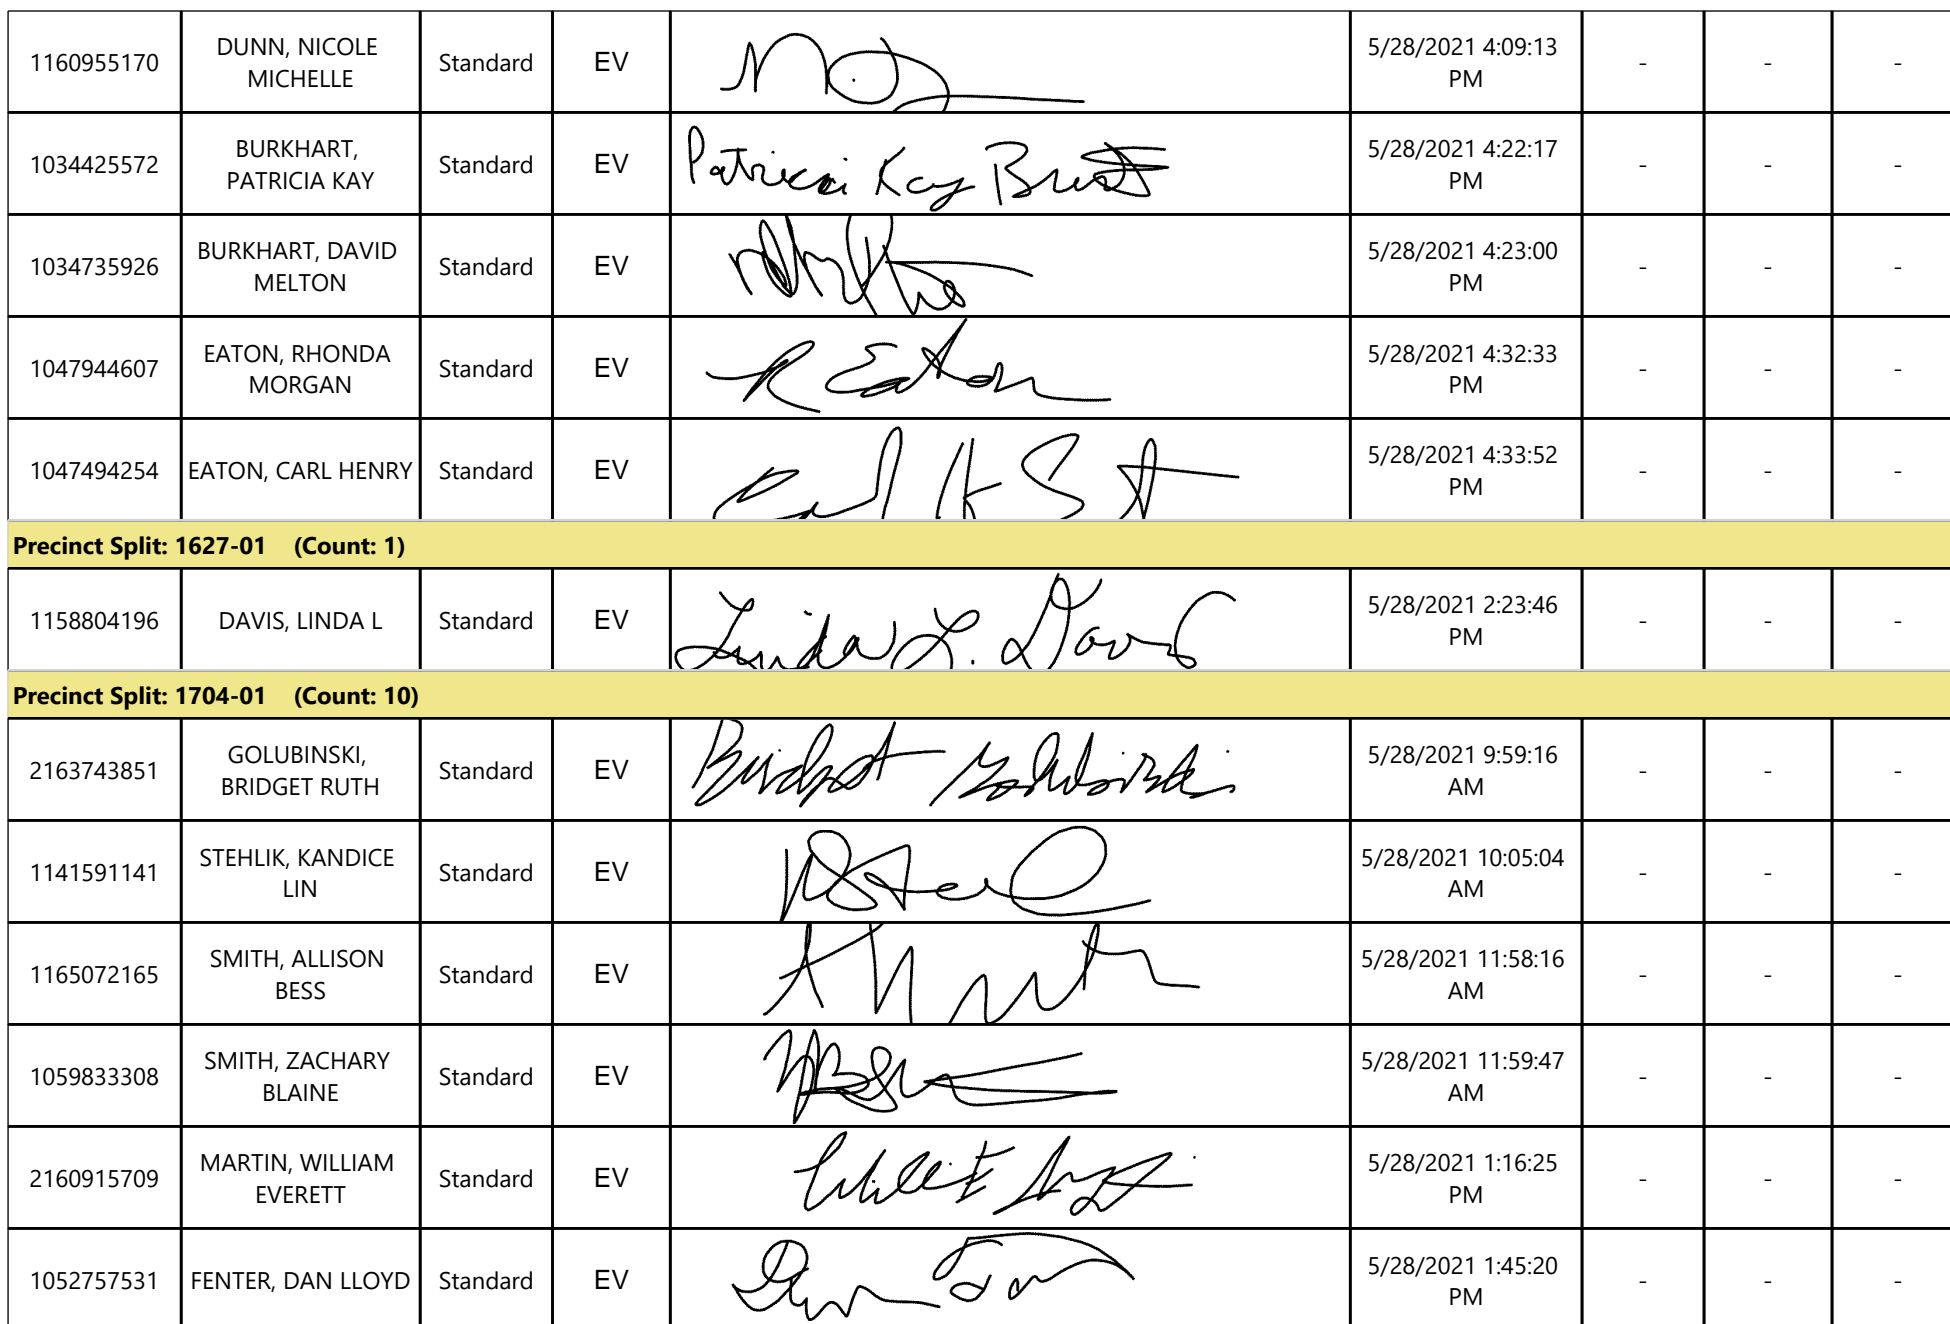 1160955170 DUNN, NICOLE MICHELLE Standard EV 5/28/2021 4:09:13 PM - - -
1034425572 BURKHART, PATRICIA KAY Standard EV Patricia Kay 5/28/2021 4:22:17 PM - - -
1034735926 BURKHART, DAVID MELTON Standard EV 5/28/2021 4:23:00 PM - - -
1047944607 EATON, RHONDA MORGAN Standard EV R Eaton 5/28/2021 4:32:33 PM - - -
1047494254 EATON, CARL HENRY Standard EV 5/28/2021 4:33:52 PM - - -
Precinct Split: 1627-01 (Count: 1)
1158804196 DAVIS, LINDA L Standard EV Linda L. Davis 5/28/2021 2:23:46 PM - - -
Precinct Split: 1704-01 (Count: 10)
2163743851 GOLUBINSKI, BRIDGET RUTH Standard EV Bridget Golubinski 5/28/2021 9:59:16 AM - - -
1141591141 STEHLIK, KANDICE LIN Standard EV 5/28/2021 10:05:04 AM - - -
1165072165 SMITH, ALLISON BESS Standard EV 5/28/2021 11:58:16 AM - - -
1059833308 SMITH, ZACHARY BLAINE Standard EV 5/28/2021 11:59:47 AM - - -
2160915709 MARTIN, WILLIAM EVERETT Standard EV 5/28/2021 1:16:25 PM - - -
1052757531 FENTER, DAN LLOYD Standard EV 5/28/2021 1:45:20 PM - - -